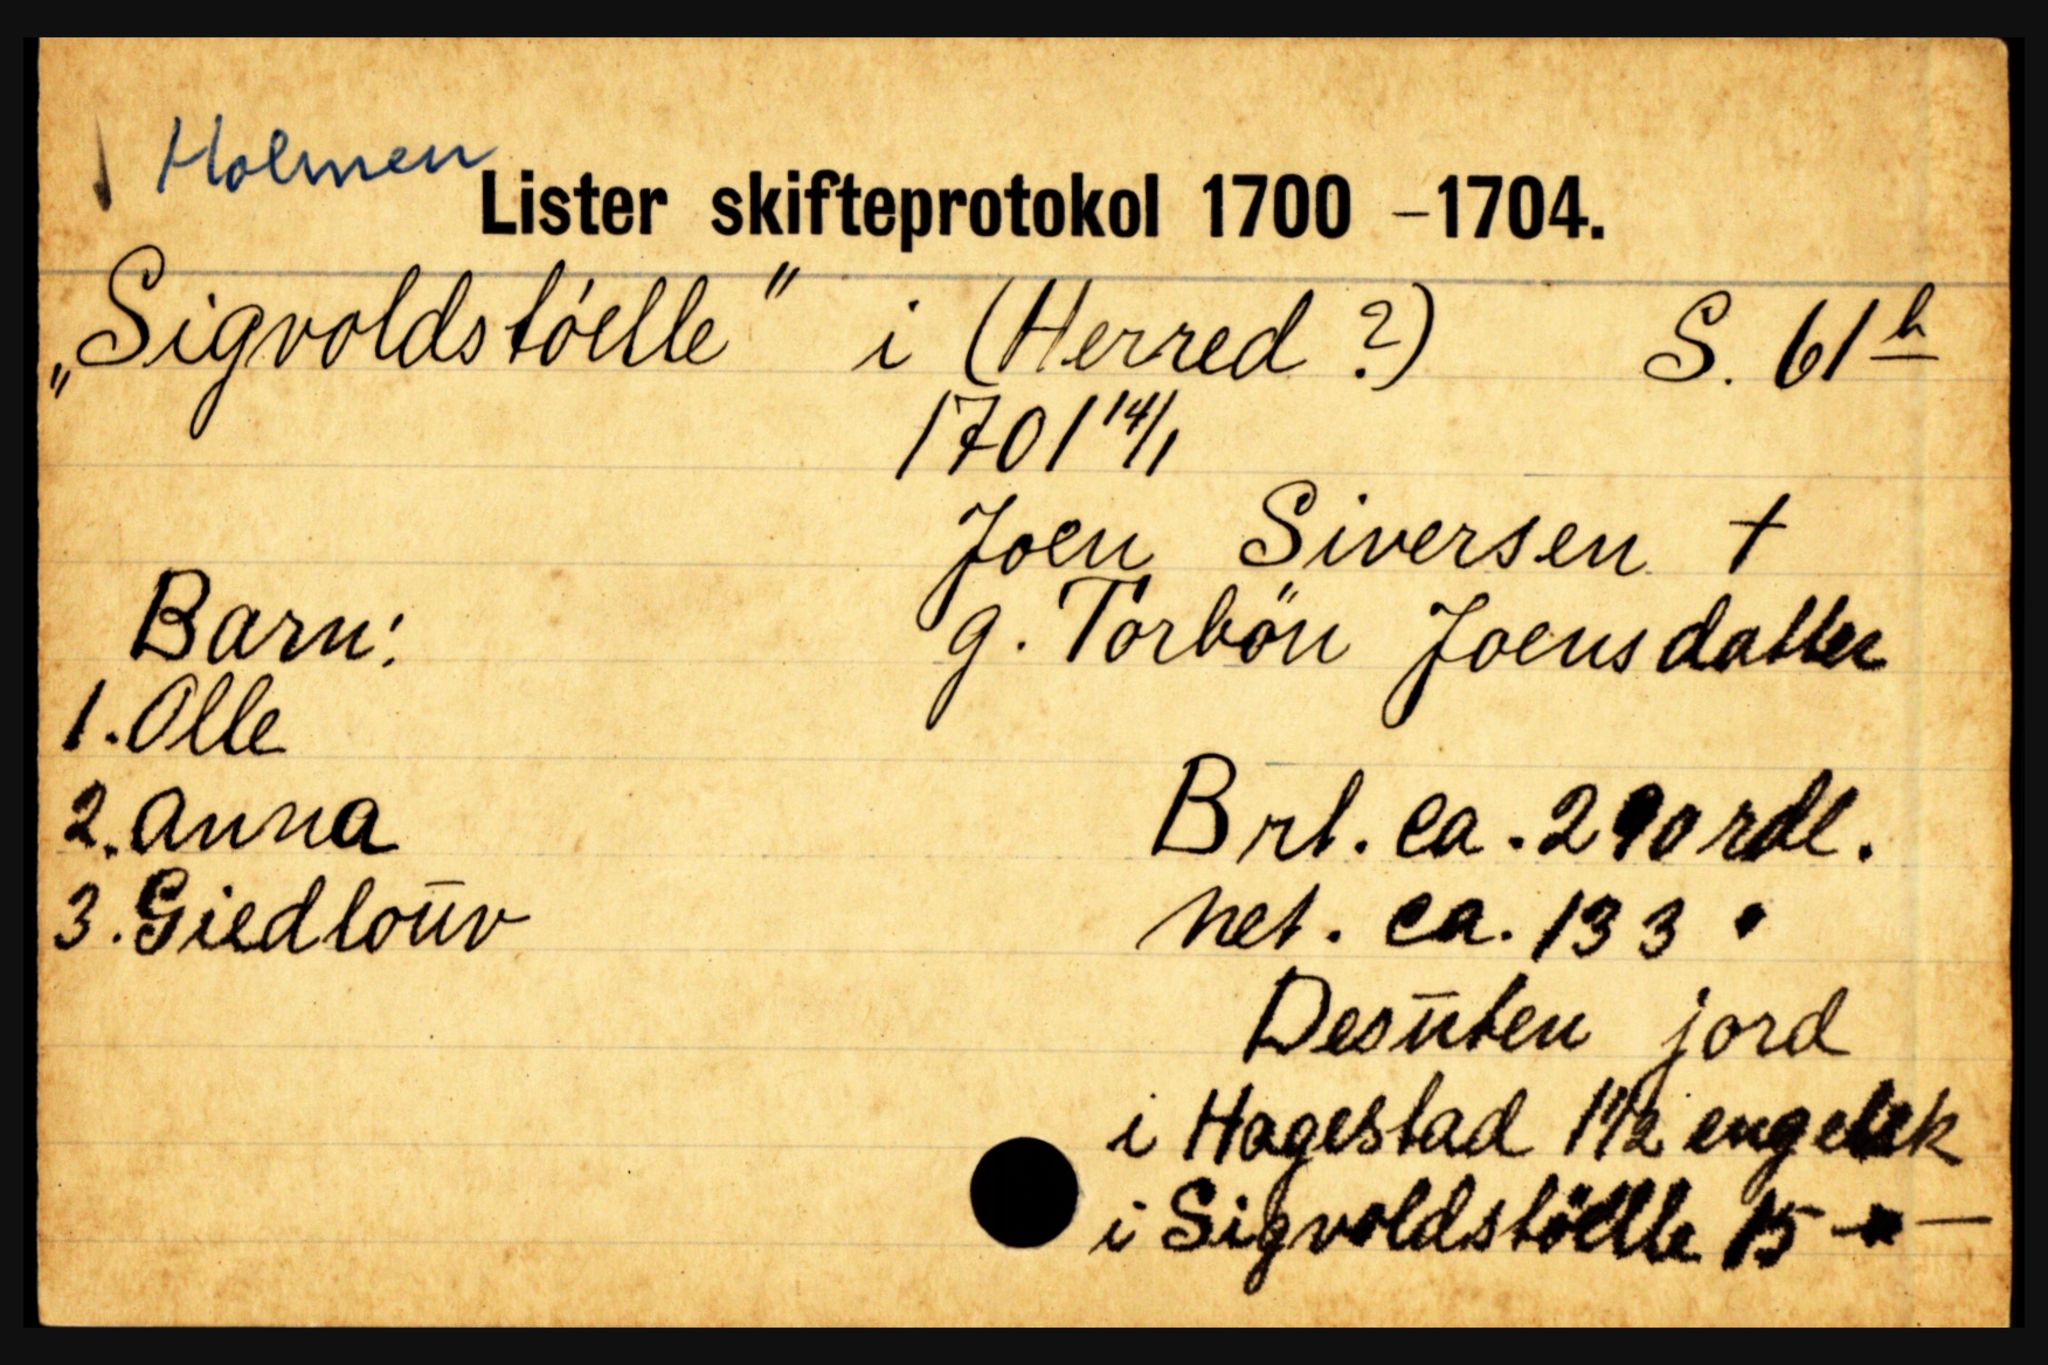 Holmen
Lister skifteprotokol 1700 –1704.
„Sigvoldstöelle" i (Herred ?) S. 61 b
1701 14/1
Joen Siversen †
Barn: g. Torbön Joensdatter
1. Olle
Brt. ca. 290 rdl.
2. Anna
3. Giedlouv net. ca. 133 "
Desuten jord
i Hagestad 1 1/2 engelsk
i Sigvoldstöelle 15 - " -